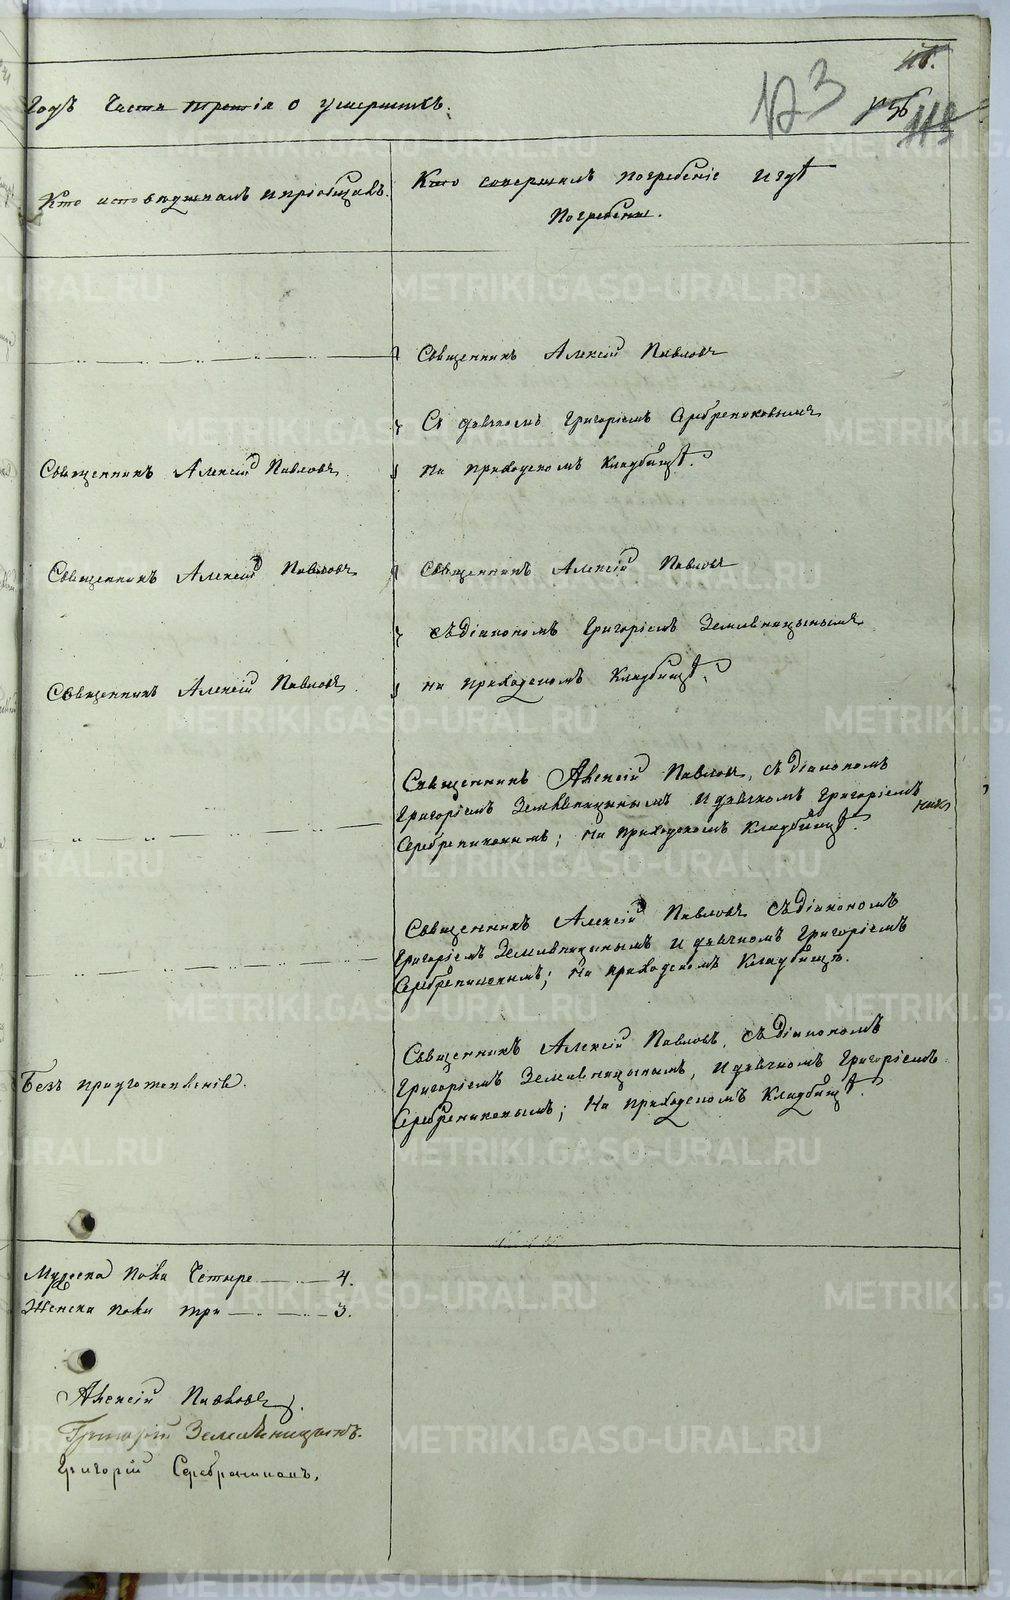 Годъ Часть третія о умершихъ.
123
118
Кто исповѣдывалъ и пріобщалъ.
Кто совершалъ погребеніе и гдѣ
погребены.
Священникъ Алексій Павловъ
Съ дьячкомъ Григоріемъ Серебренниковымъ
На приходскомъ Кладбищѣ.
Священникъ Алексій Павловъ
Священникъ Алексій Павловъ
Священникъ Алексій Павловъ
съ діакономъ Григоріемъ Земляницынымъ
Священникъ Алексій Павловъ
на приходскомъ Кладбищѣ.
Священникъ Алексій Павловъ, съ діакономъ
Григоріемъ Земляницынымъ и дьячкомъ Григоріемъ
Серебрениковымъ; на приходскомъ Кладбищѣ.
Священникъ Алексій Павловъ съ діакономъ
Григоріемъ Земляницынымъ и дьячкомъ Григоріемъ
Серебрениковымъ; на приходскомъ Кладбищѣ.
Священникъ Алексій Павловъ, съ діакономъ
Григоріемъ Земляницынымъ, и дьячкомъ Григоріемъ
Серебрениковымъ; на приходскомъ Кладбищѣ.
Безъ
Мужеска пола Четыре 4.
Женска пола три 3.
Алексій Павловъ.
Григорій Земляницынъ.
Григорій Серебрениковъ.
METRIKI.GASO-URAL.RU